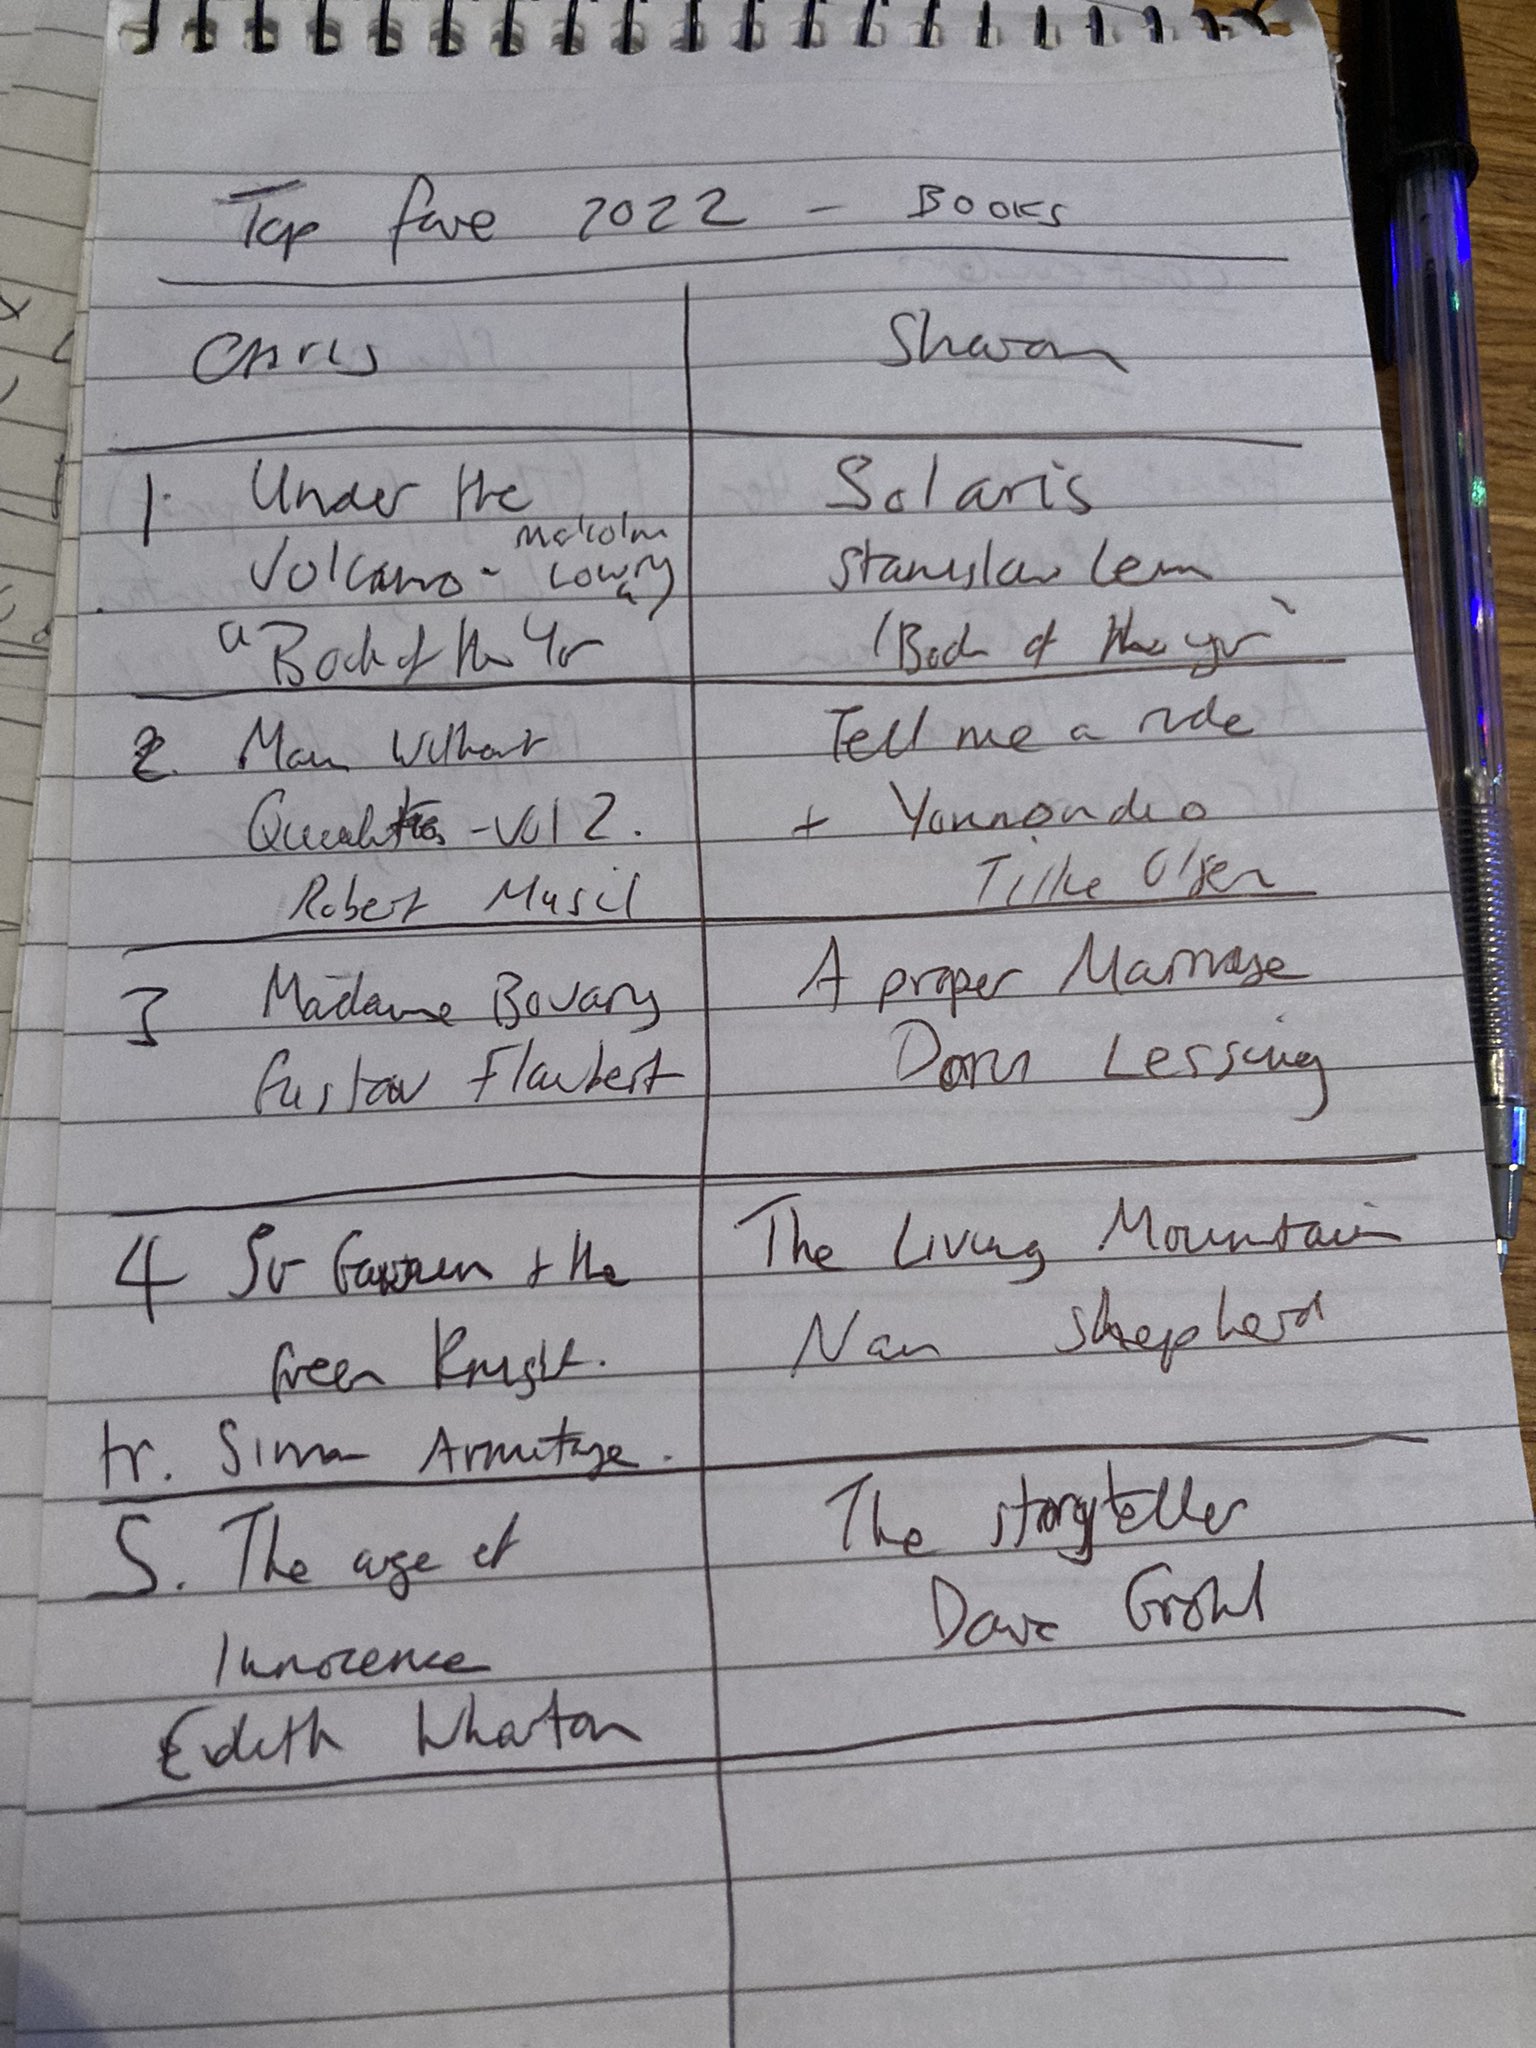 Top five 2022 - BOOKS
Chris
Sharon
1. Under the
Volcano - Malcolm
Lowry
"Book of the Yr
Solaris
Stanislaw Lem
'Book of the yr'
2. Man Without
Qualities - Vol 2.
Robert Musil
Tell me a ride
+ Yonnondio
Tillie Olsen
3 Madame Bovary
Gustav Flaubert
A proper Marriage
Doris Lessing
4 Sir Gawain + the
Green Knight.
tr. Simon Armitage.
The Living Mountain
Nan Shepherd
5. The age of
Innocence
Edith Wharton
The storyteller
Dave Grohl